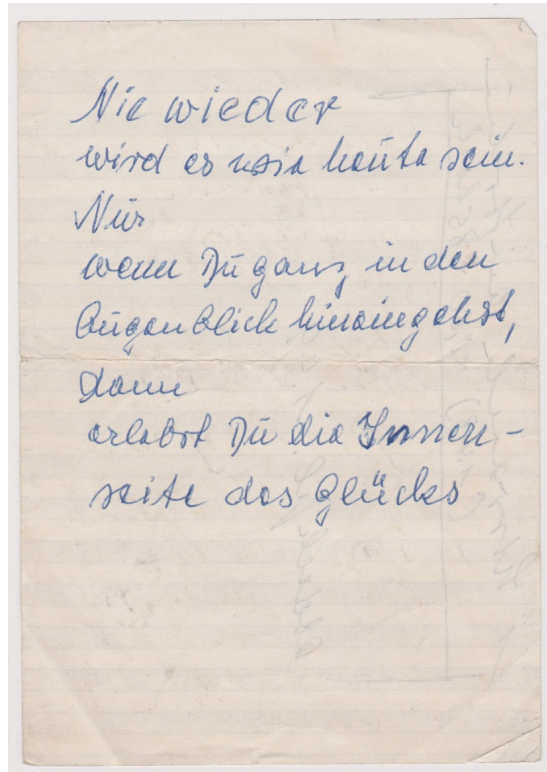 Nie wieder
wird es wie heute sein.
Nur
wenn Du ganz in den
Augenblick hineingehst,
dann
erlebst Du die Innen-
seite des Glücks